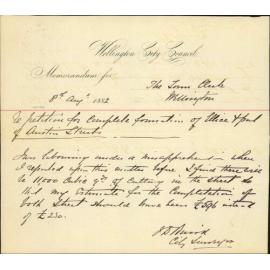 Wellington City Council
Memorandum for
The Town Clerk
8th Augt 1882
Wellington
Re petition for complete formation of Ellice & part
of Austin Streets
I was labouring under a misapprehension when
I reported upon this matter before I find there will
be 11,000 Cubic yds of Cutting in the Street so
that my estimate for the Completation of
both Streets should have been instead
of £230.
City Surveyor